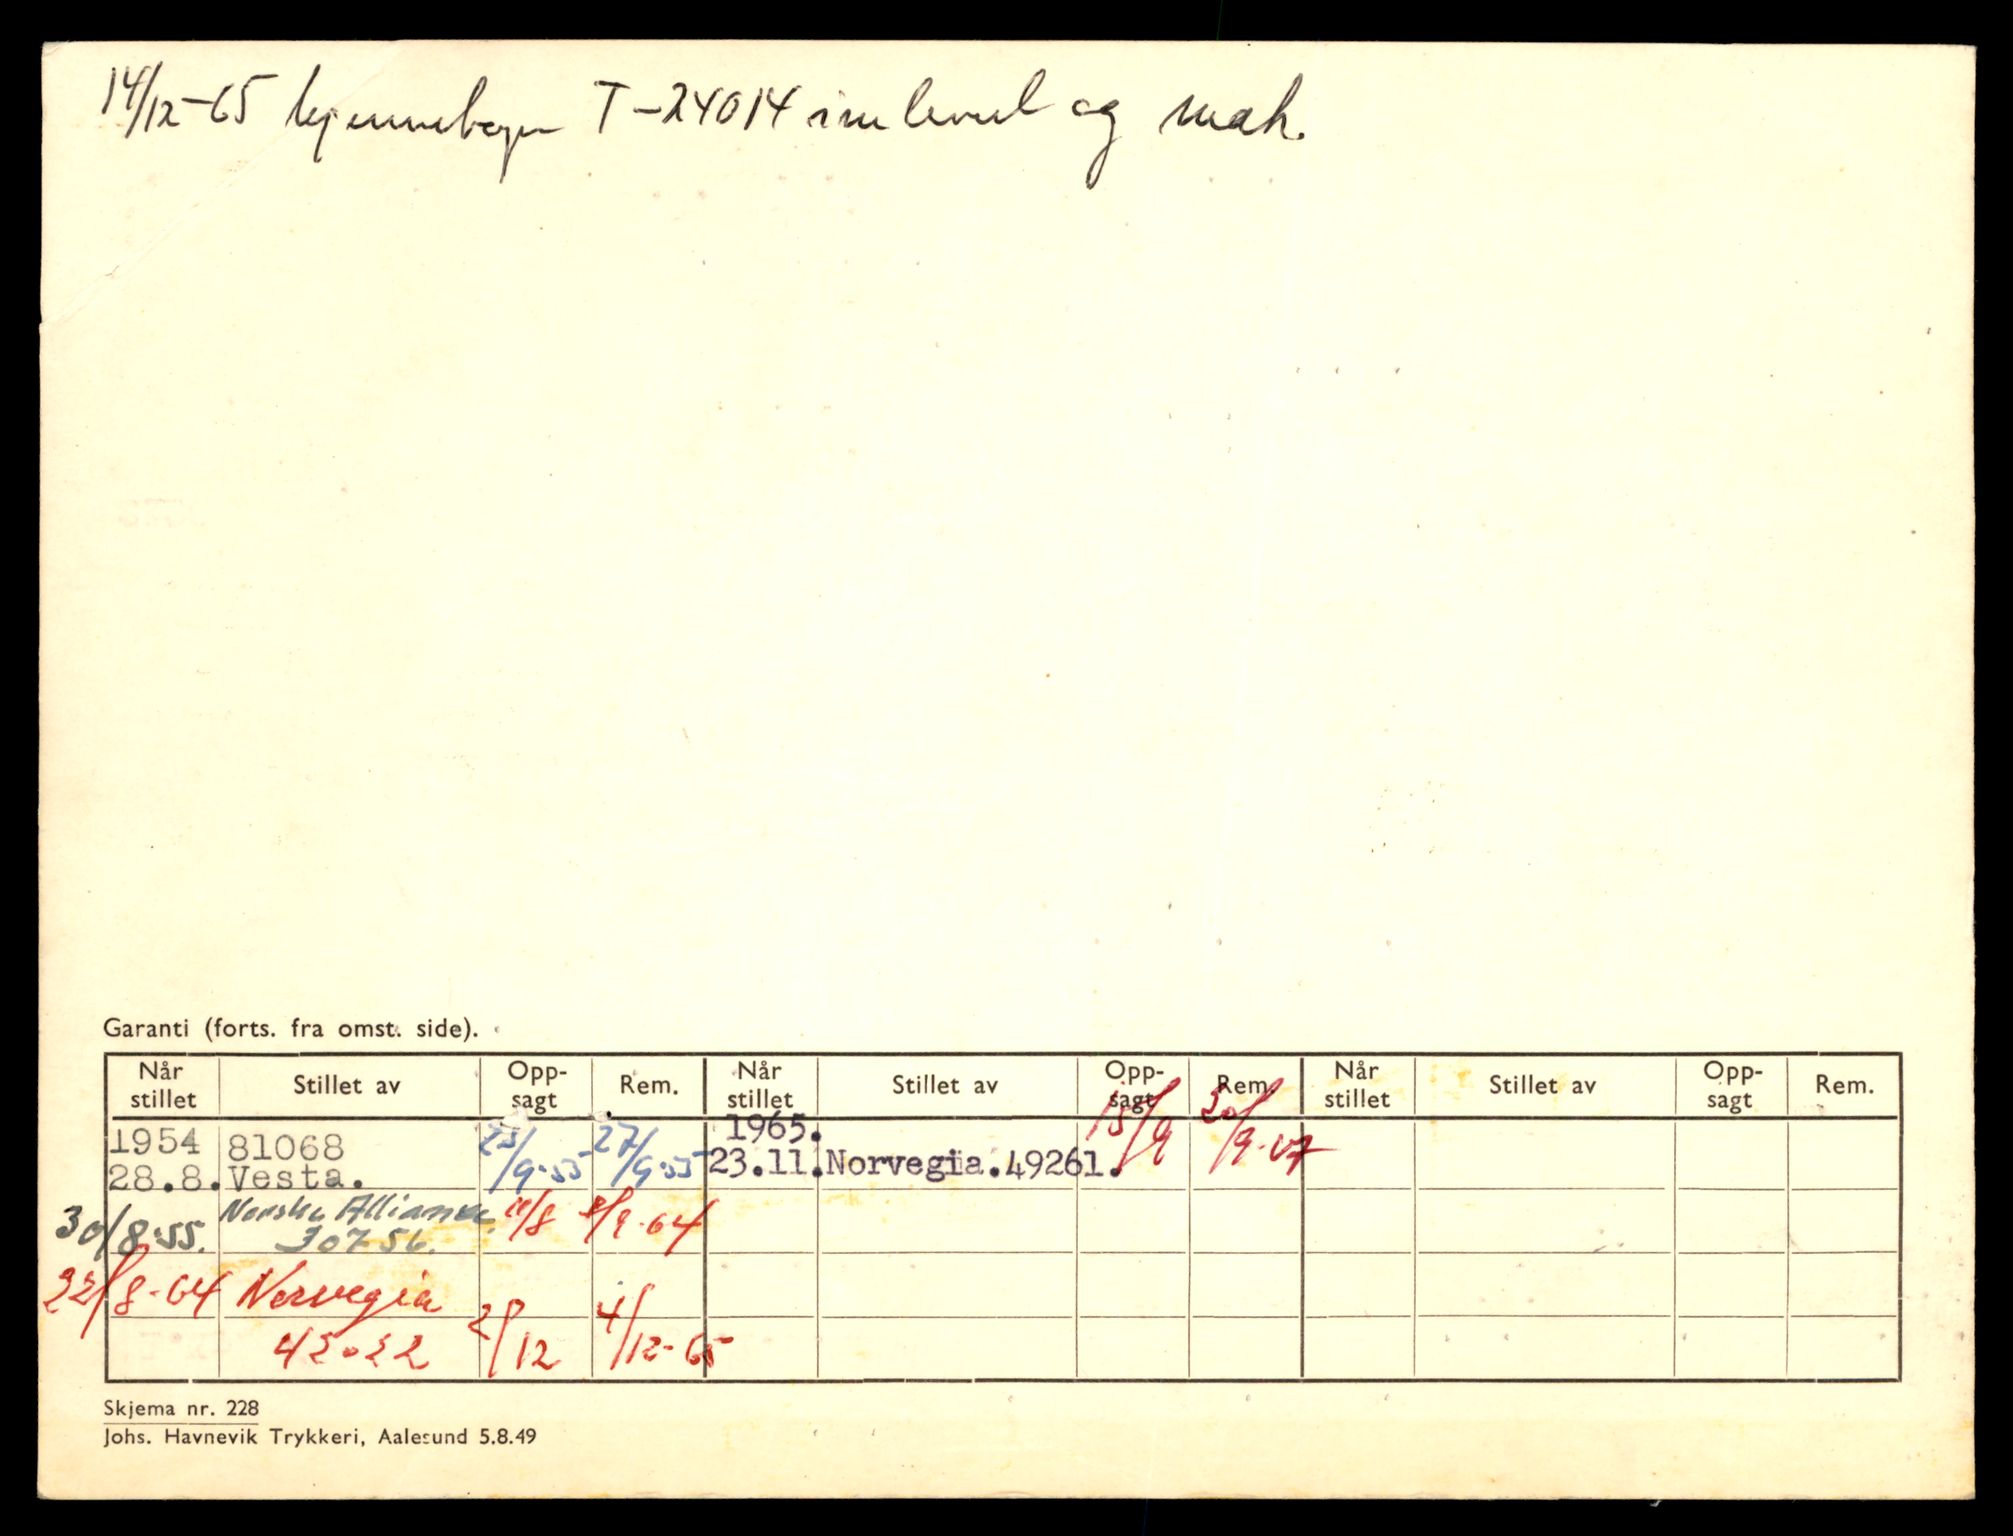 14/12-65 kjennebogen T-24014 innlevert og mak.
Garanti (forts. fra omst. side).
Når stillet Stillet av Opp-sagt Rem. Når stillet Stillet av Opp-sagt Rem. Når stillet Stillet av Opp-sagt Rem.
1954 81068 1965. 15/9
28.8. Vesta. /9-55 27/9-55 23.11. Norvegia. 49261. 20/9-67
30/8-55. Norske Alliance 11/8 8/9-64
30756.
22/8-64 Norvegia
2/12 4/12-65
Skjema nr. 228
Johs. Havnevik Trykkeri, Aalesund 5.8.49